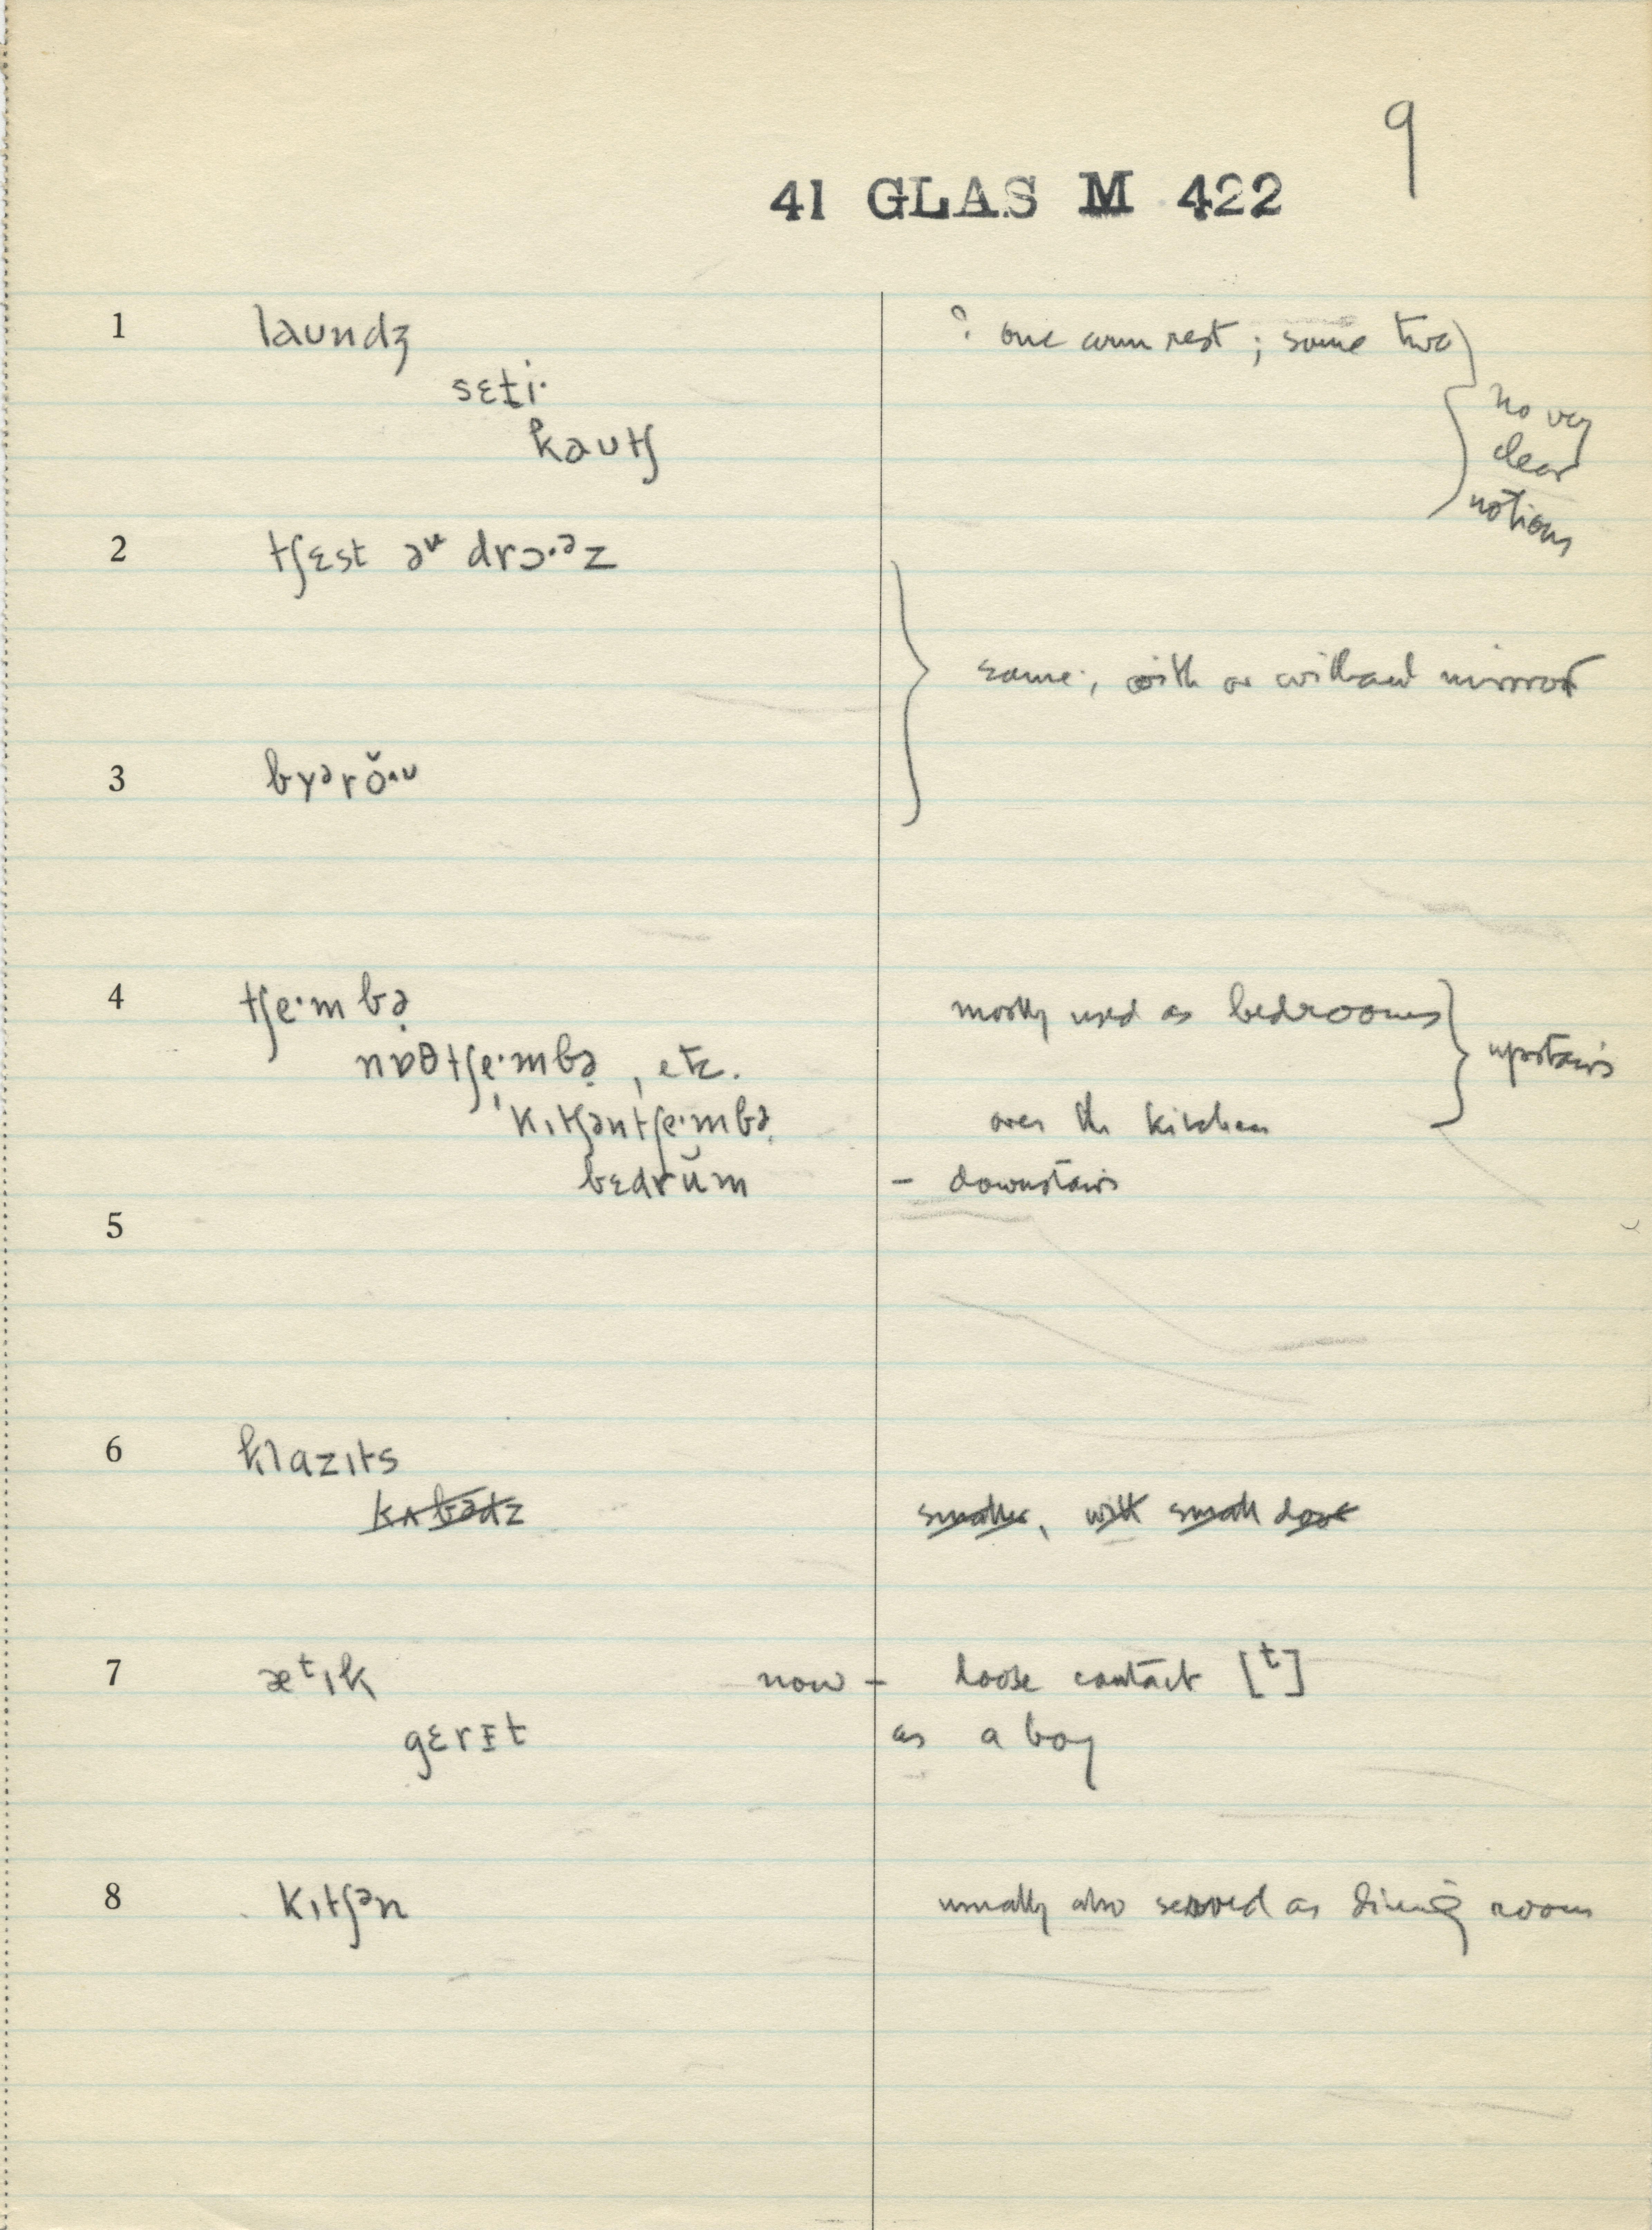 9
41 GLAS M 422
1 laundʒ ? one arm rest; some two
sɛt̠i· no very
kəuʧ clear
notions
2 ʧɛst əᵛ drɔ·ᵊz
same; with or without mirror
3 byᵊrŏ·ᵘ
4 ʧe·mbə̣ mostly used as bedrooms
nɒθʧe·mbə̣, etc. upstairs
kɪʧənʧe·mbə̣ over the kitchen
bɛdrŭm – downstairs
5
6 klazɪts
kʌbədz smaller, with small door
7 æᵗɪk now – loose contact [ᵗ]
gɛrɪt as a boy
8 kɪʧᵊn usually also served as dining room